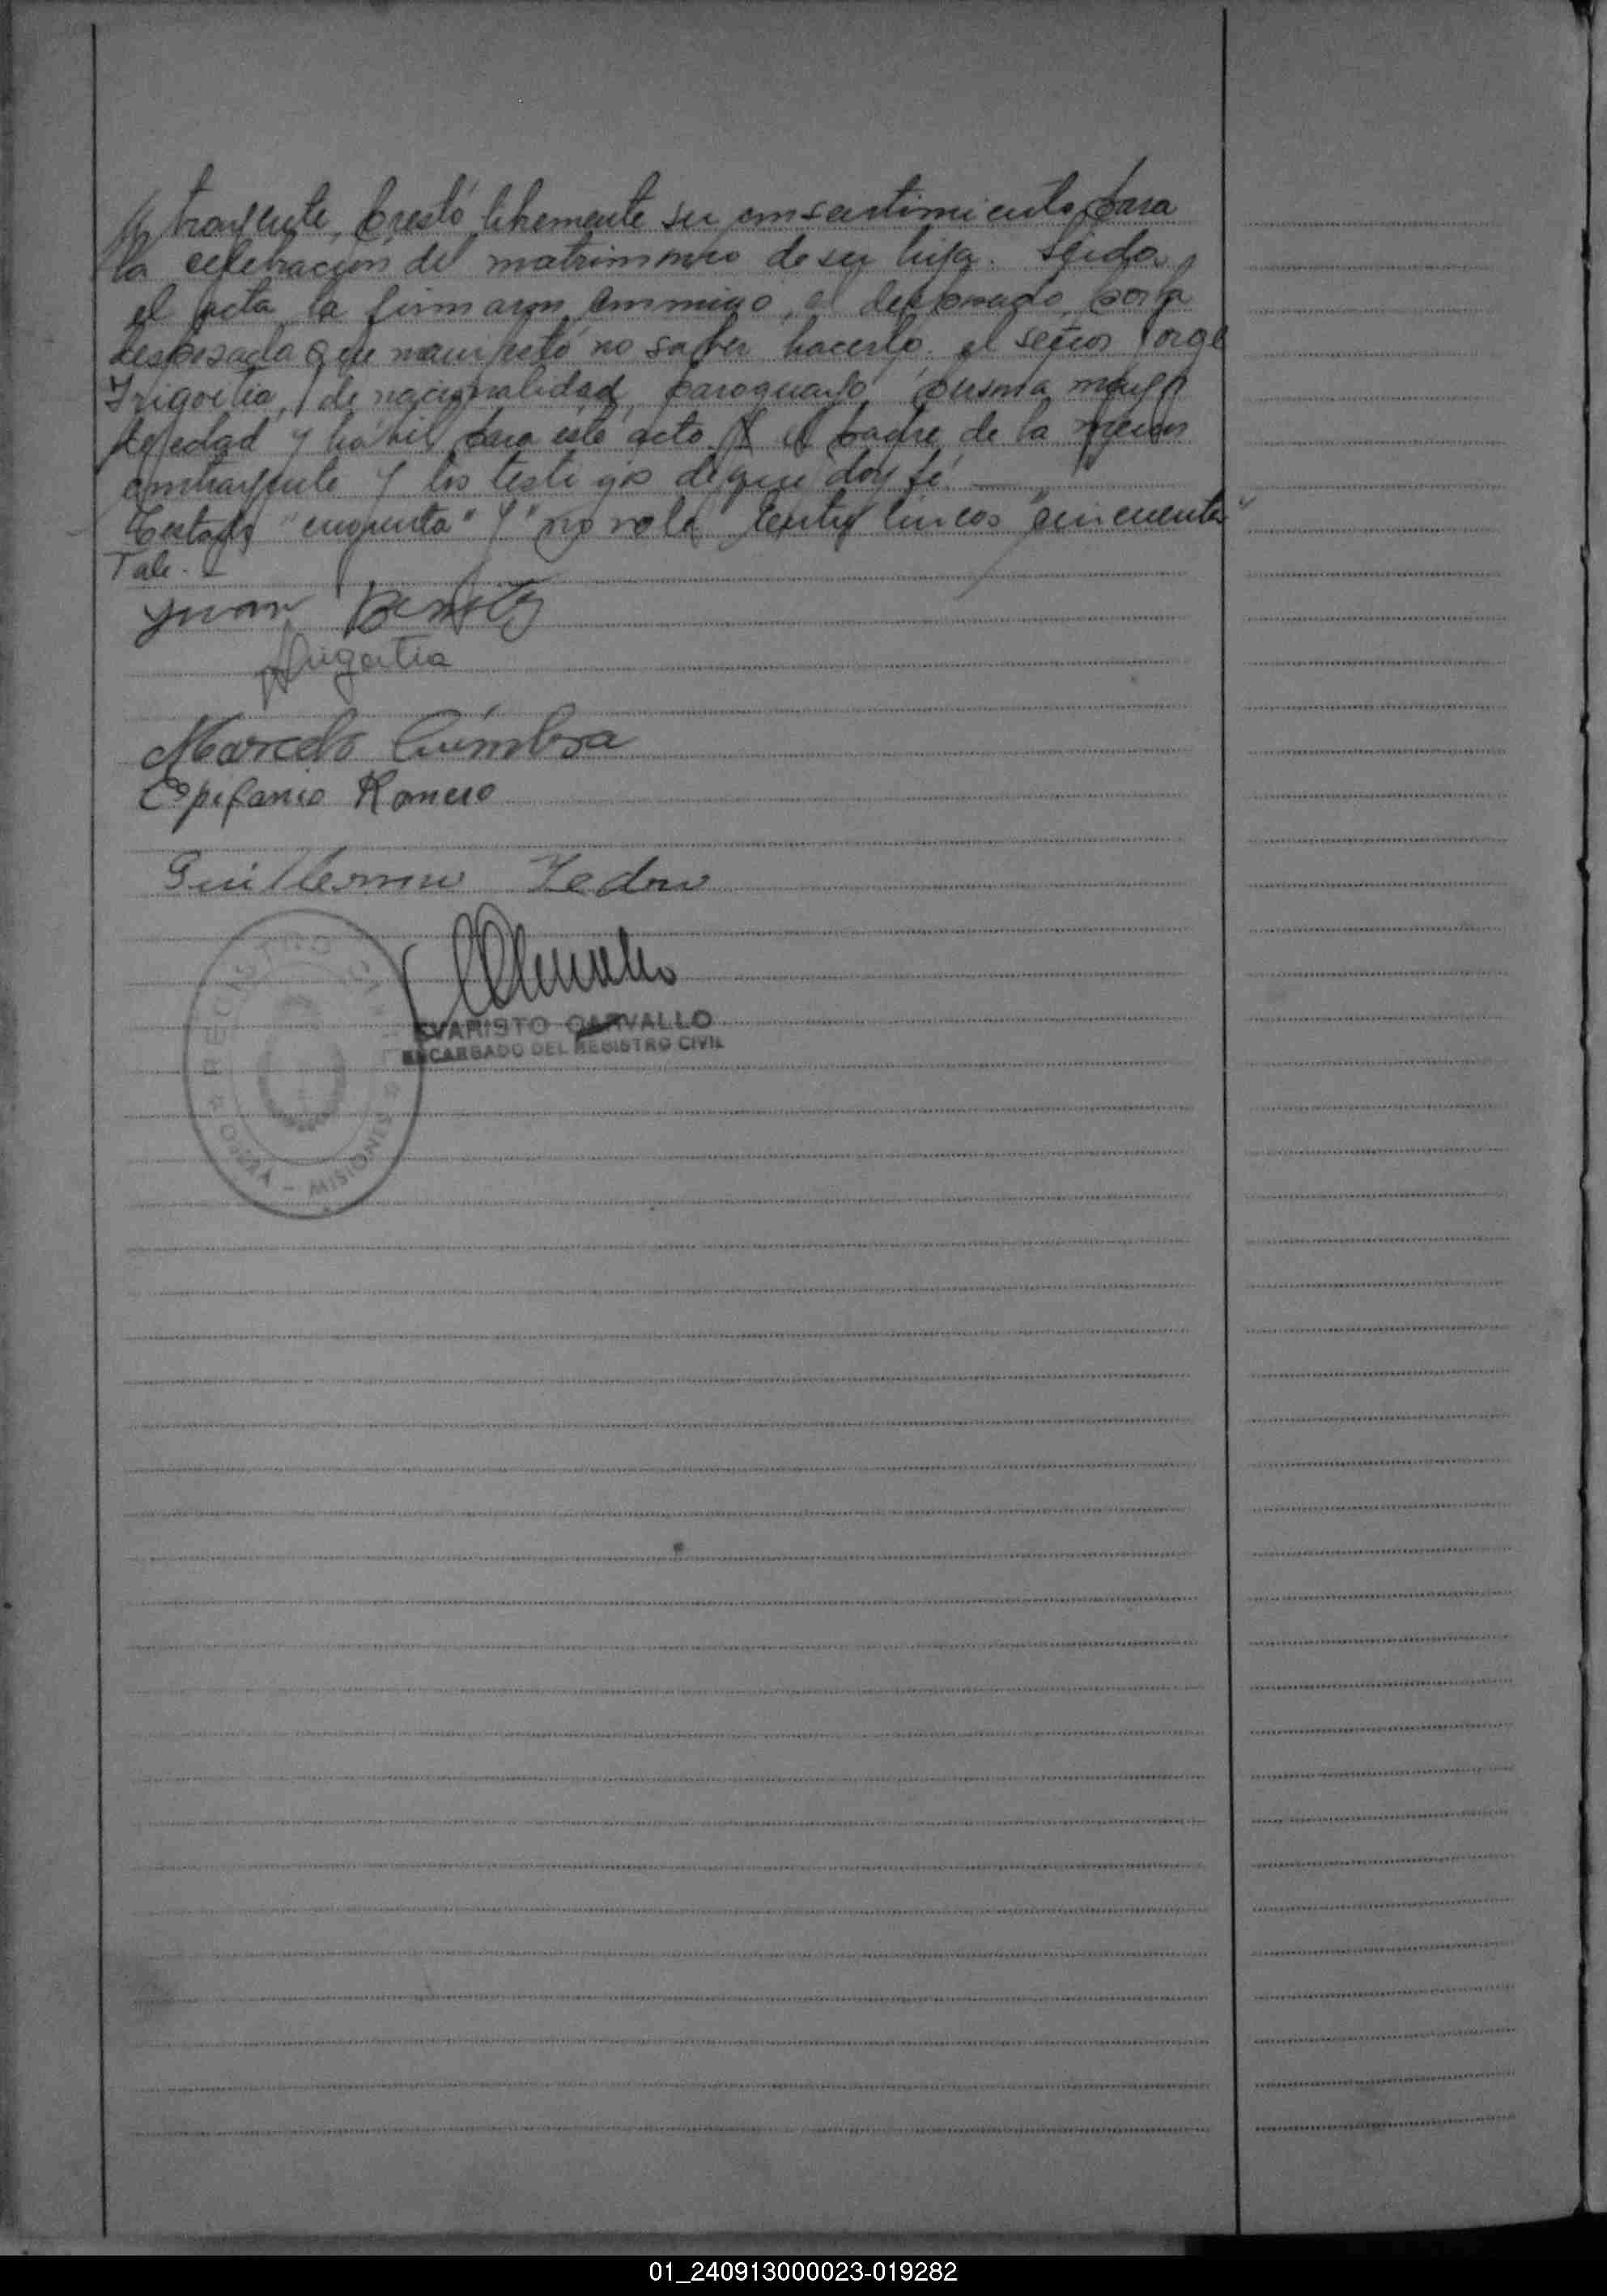 trayente, prestó libremente su consentimiento para
la celebracion del matrimonio de su hija. Leida
el acta la firmaron conmigo, el desposado, por la
desposada que manifestó no saber hacerlo, el señor Jorge
Irigoitia, de nacionalidad paraguayo, persona mayor
de edad y hábil para este acto, el padre de la menor
contrayente y los testigos de que doy fé.—
Testado " " y " " no vale Entre lineas "cincuenta"
Vale.-
Juan Benitez
Irigoitia
Marcelo Coimbra
Epifanio Romero
Guillermo
REGISTRO CIVIL
OBERA - MISIONES
EVARISTO CARVALLO
ENCARGADO DEL REGISTRO CIVIL
01_240913000023-019282